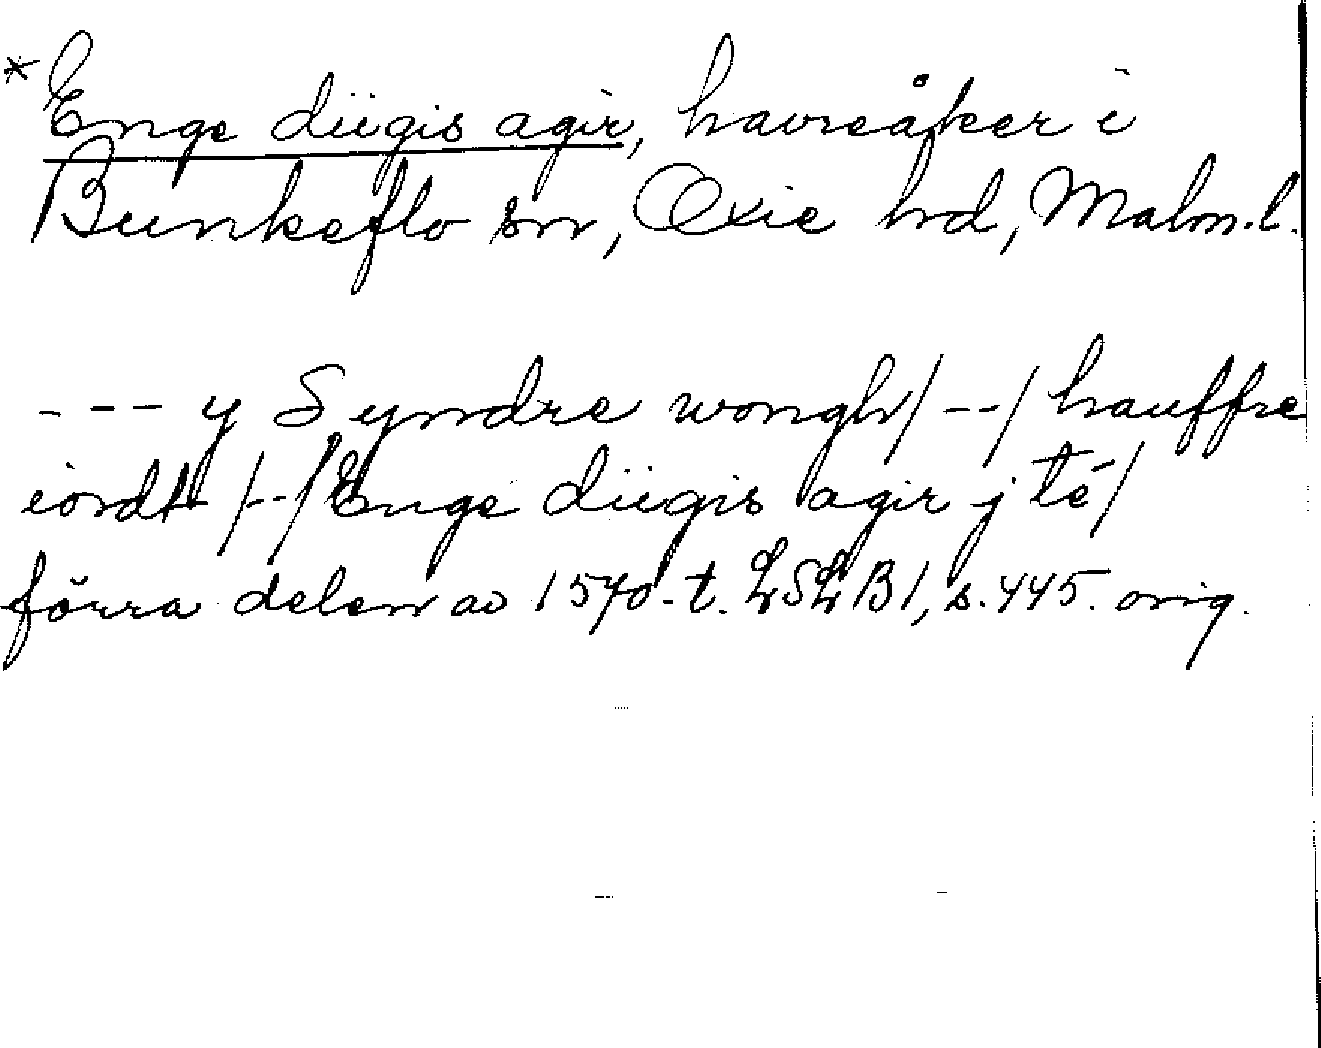 *Enge diigis agir, havreåker i
Bunkeflo sn, Oxie hd, Malm.l.
--- y Syndre wongh/--/hauffre
iordt /--/Enge diigis agir j té/
förra delen av 1570-t. LSLB1, s.445. orig.